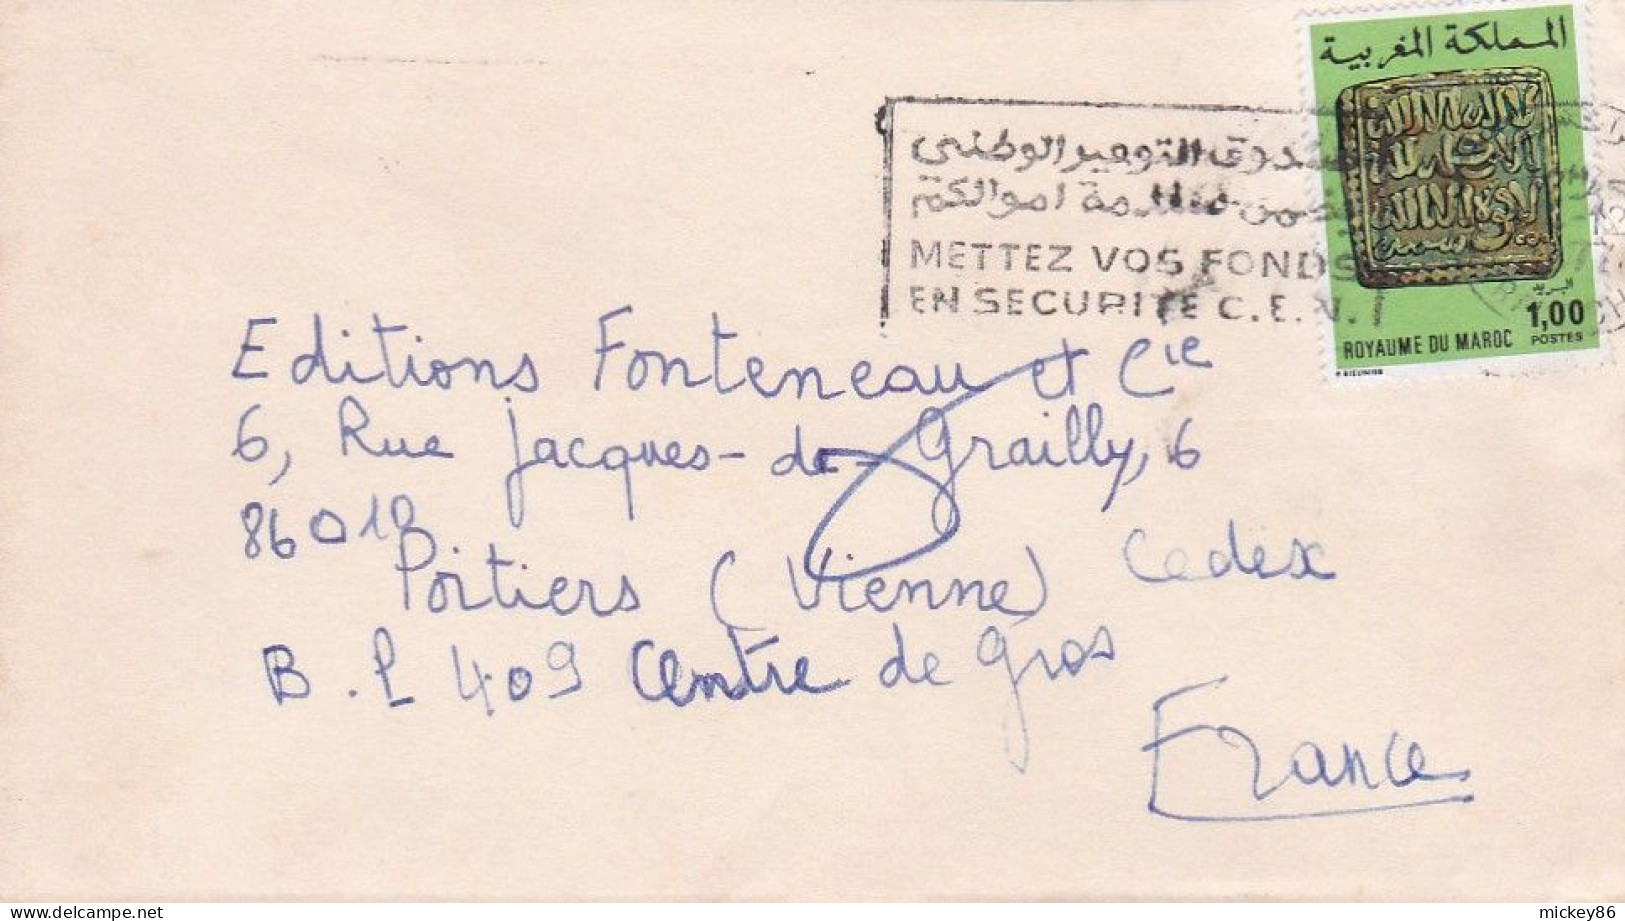 المملكة المغربية
صندوق التوفير الوطني
سلامة اموالكم
METTEZ VOS FONDS
EN SECURITE C.E.N.
البريد
1,00
POSTES
ROYAUME DU MAROC
Editions Fonteneau et Cie
6, Rue Jacques-de-Grailly, 6
86010
Poitiers (Vienne) Cedex
B.P 409 Centre de gros
France
mickey86